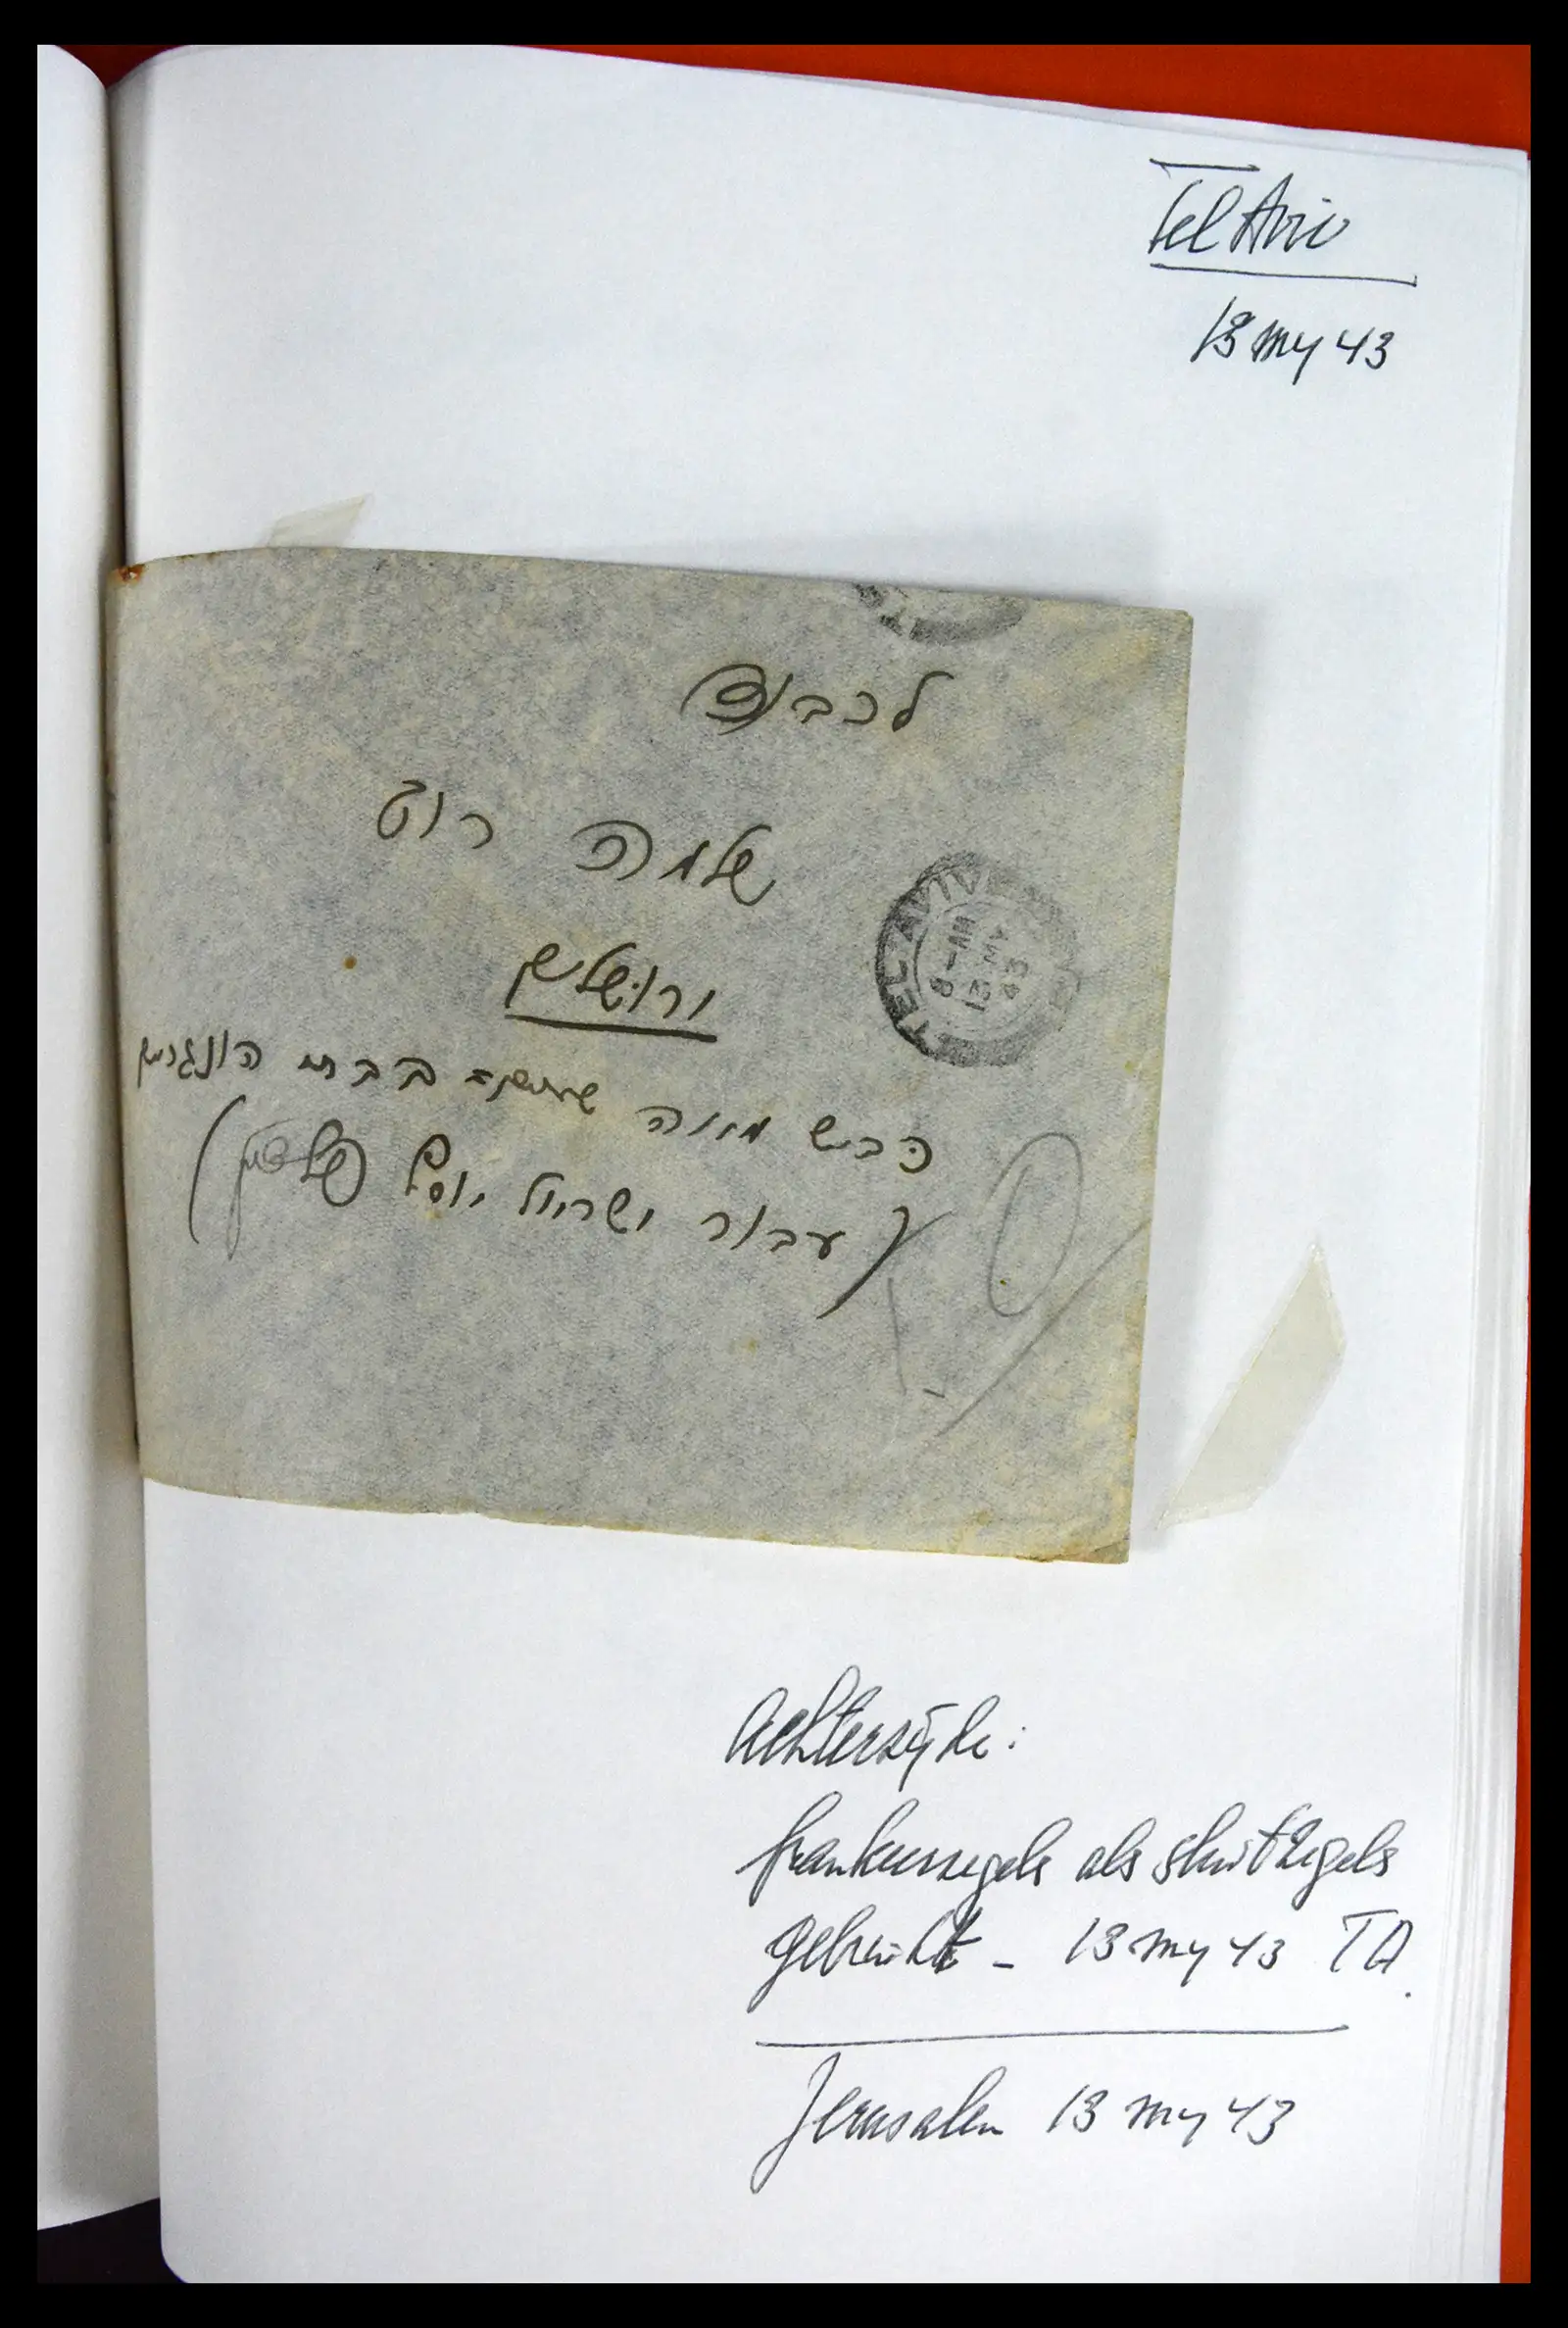 Tel Aviv
13 my 43
לכבוד
שלמה רוט
ירושלים
כביש מאה שערים בבתי הונגרים
(עבור ישראל יוסף)
TEL AVIV
8 - AM
13 MY
43
Achterzyde:
frankeerzegels als sluitzegels
gebruikt - 13 my 43 TA.
Jerusalem 13 my 43